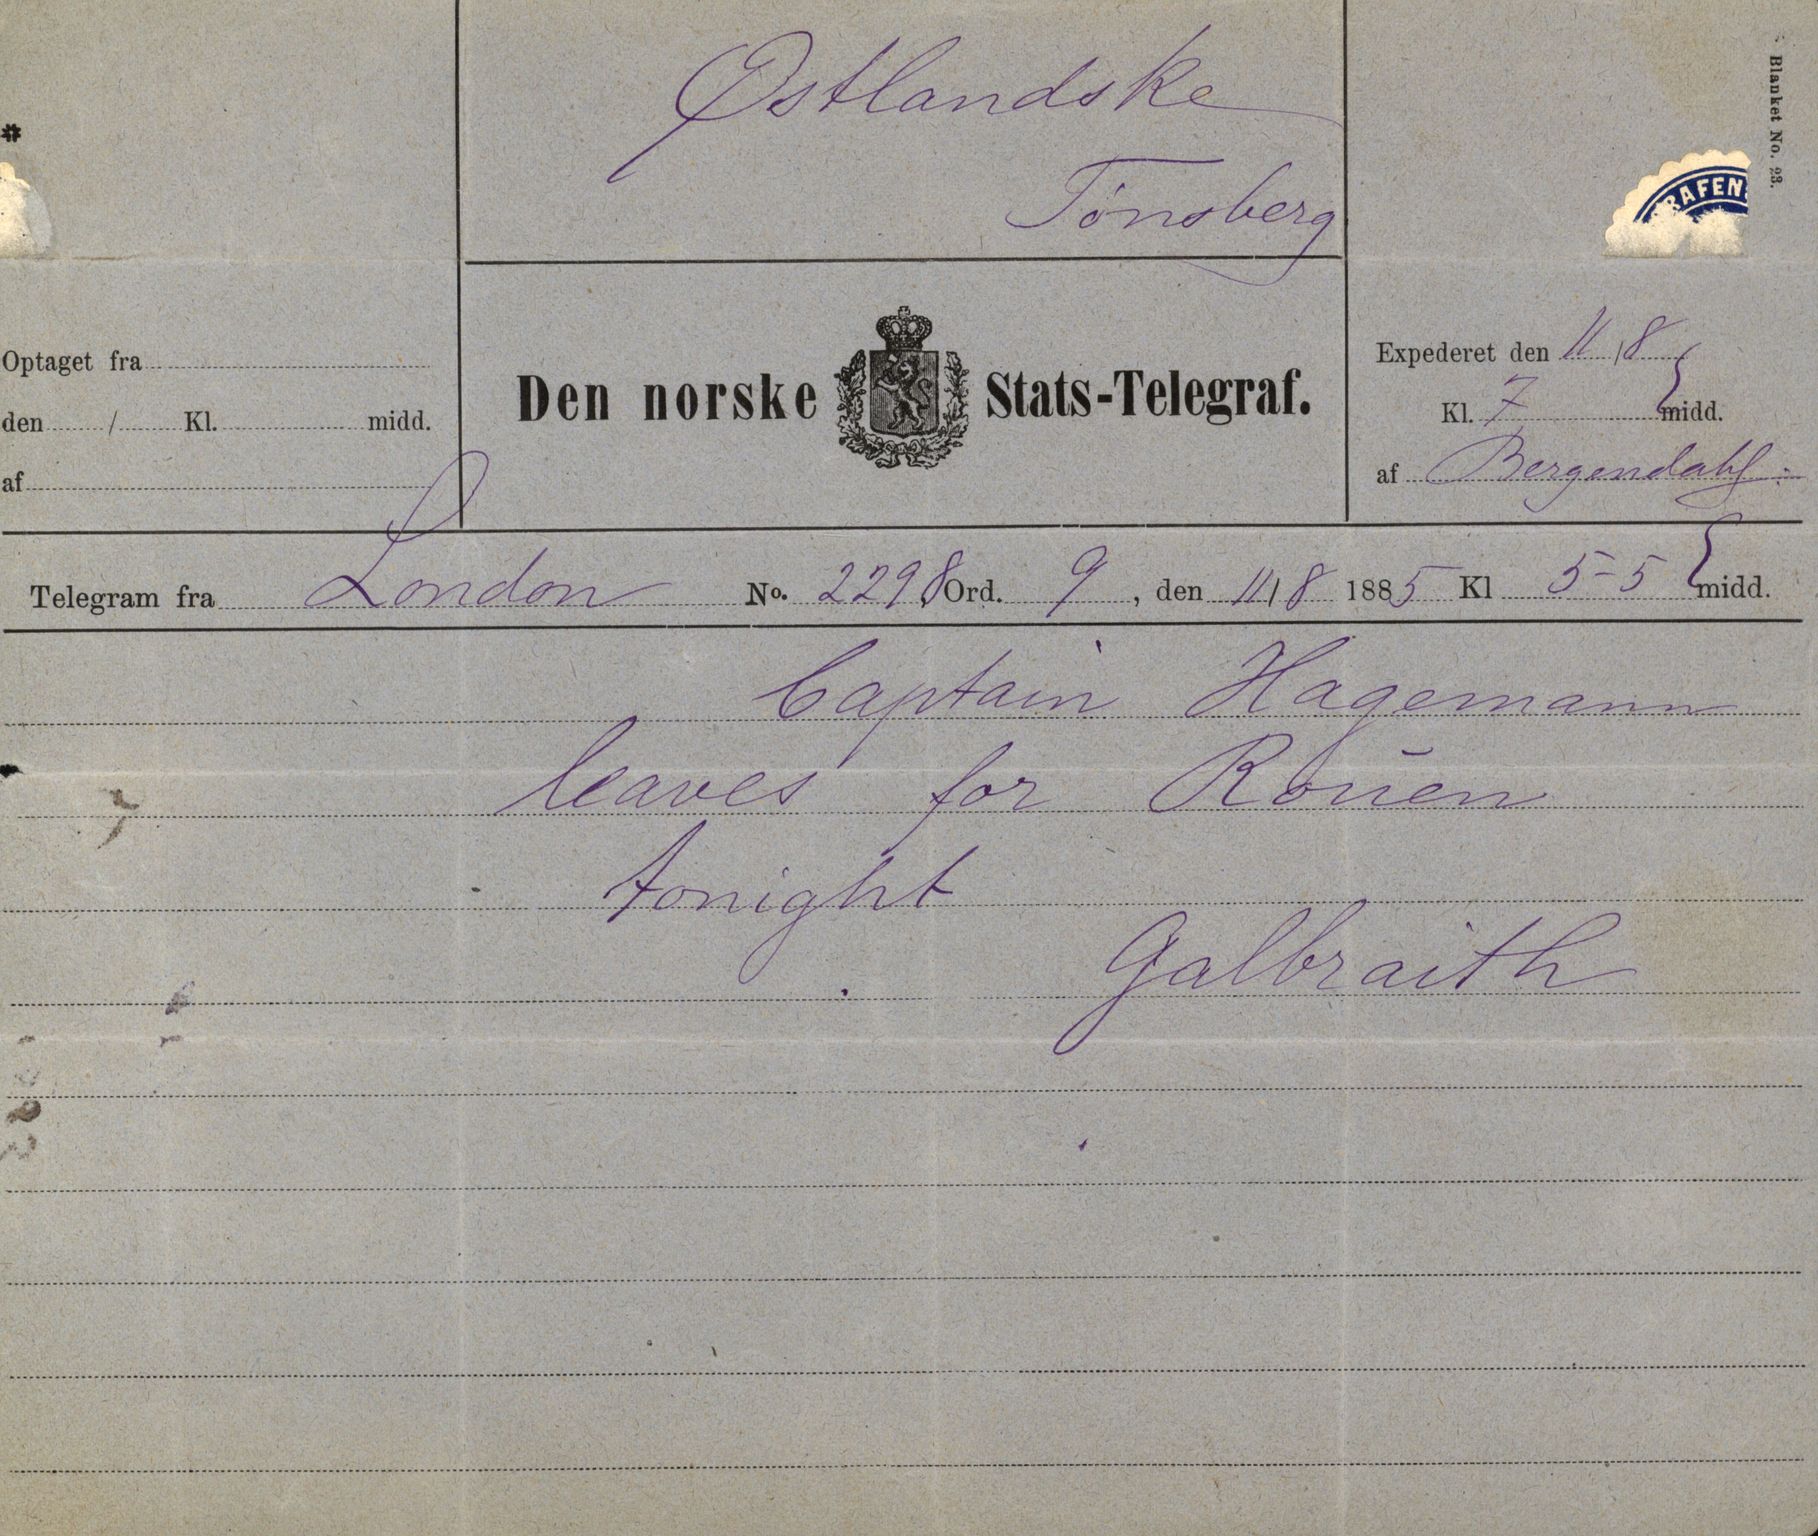 Østlandske
Tönsberg
Blanket No. 23.
RAFEN
Optaget fra
den / Kl. midd.
af
Den norske Stats-Telegraf.
Expederet den 11/8
Kl. 7 midd.
af Bergendahl
Telegram fra London No. 2298 Ord. 9, den 11/8 1885 Kl 5-5 midd.
Captain Hagemann
leaves for Rouen
tonight
Galbraith